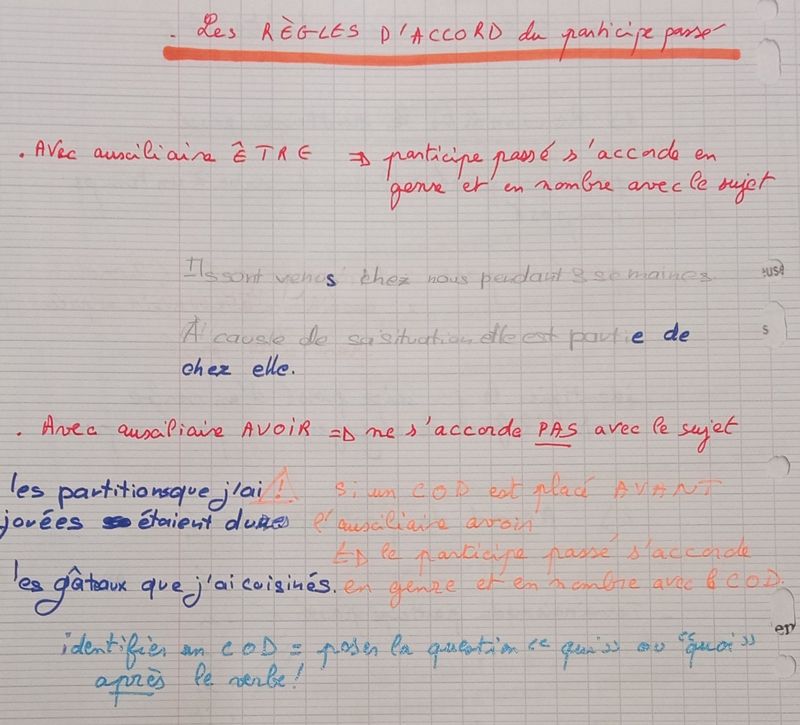 . Les RÈGLES D'ACCORD du participe passé
. Avec auxiliaire ÊTRE => participe passé s'accorde en
genre et en nombre avec le sujet
Ils sont venus chez nous pendant 3 semaines.
À cause de sa situation elle est partie de
chez elle.
. Avec auxiliaire AVOIR => ne s'accorde PAS avec le sujet
les partitions que j'ai
jouées étaient dures
! si un COD est placé AVANT
l'auxiliaire avoir
=> le participe passé s'accorde
en genre et en nombre avec le COD.
les gâteaux que j'ai cuisinés.
identifier un COD = poser la question "qui" ou "quoi"
après le verbe!
s
en